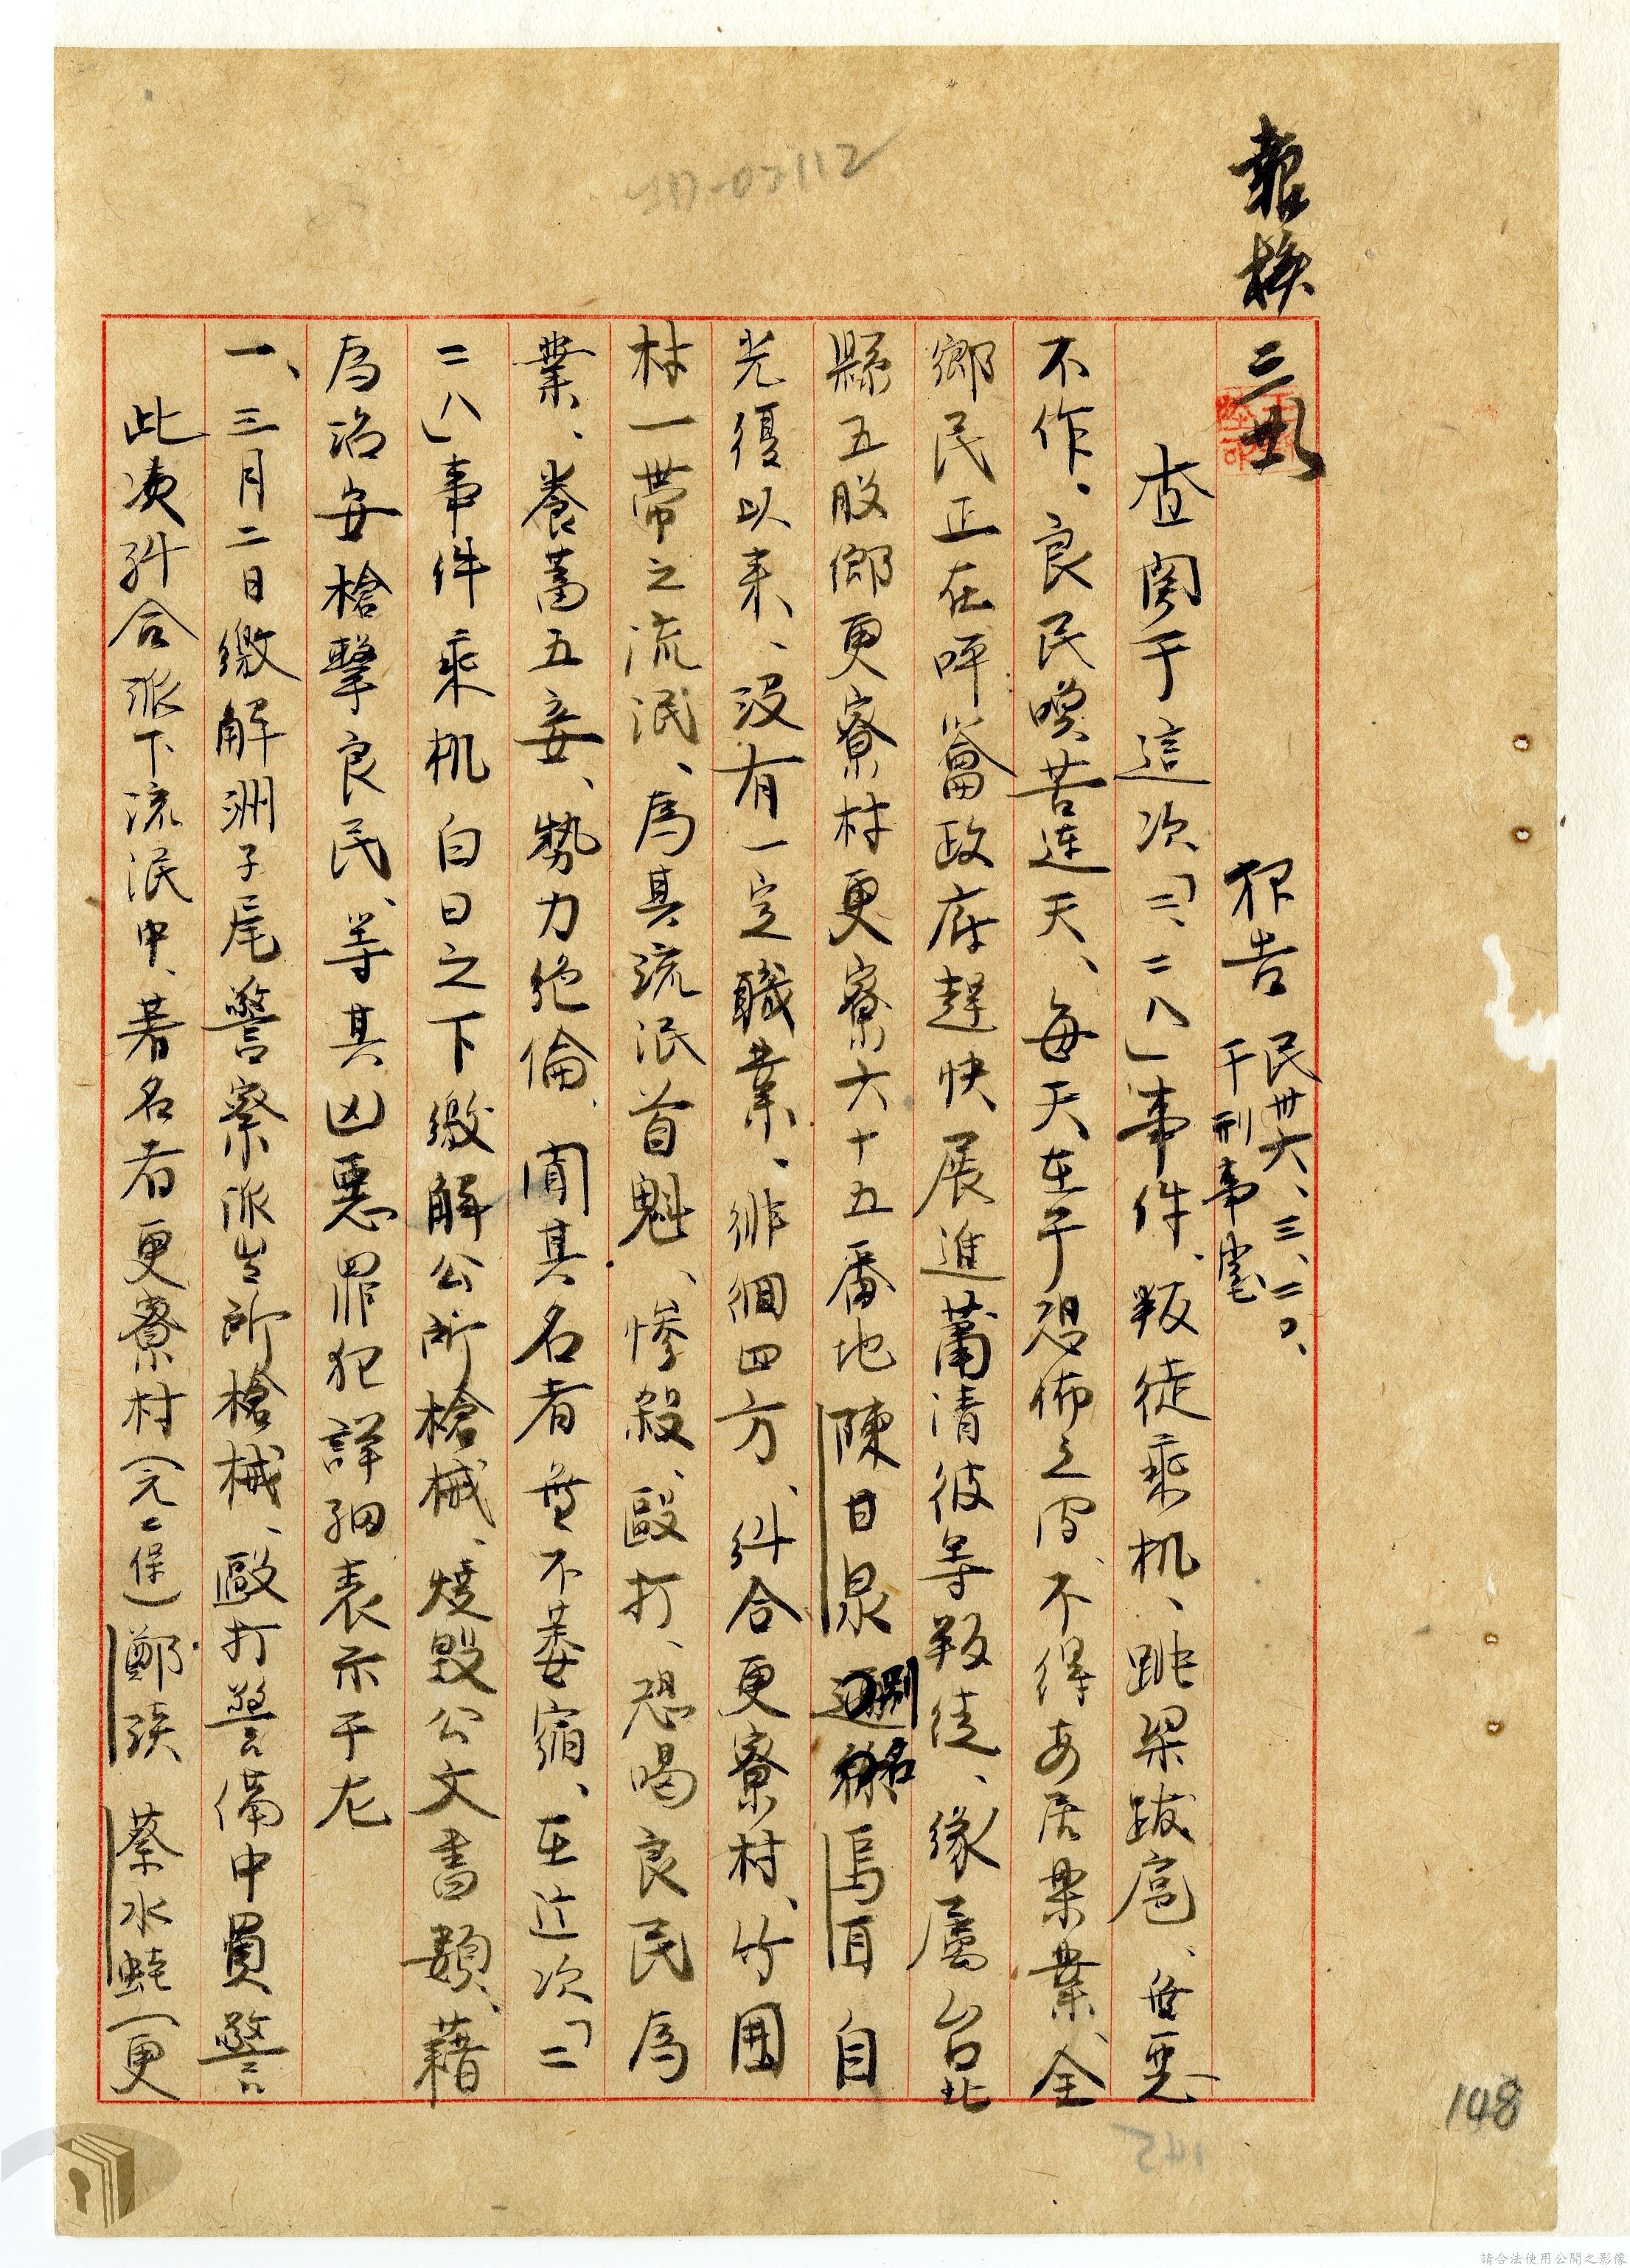 報核
三 廿
報告 民卅六、三、二〇、
于刑事室
查関于這次「二、二八」事件、叛徒乘机、跳梁跋扈、無惡
不作、良民嘆苦連天、每天在于恐怖之中、不得安居樂業、全
鄉民正在呼籲政府趕快展進肅清彼等叛徒、緣屬台北
縣五股鄉更寮村更寮六十五番地陳甘泉 別名 烏貢自
光復以来、没有一定職業、徘徊四方、糾合更寮村、竹围
村一帶之流氓、為其流氓首魁、慘殺、毆打、恐喝良民為
業、養蓄五妾、勢力絶倫、聞其名者無不萎宿、在近次「二
二八」事件乘机白日之下繳解公所槍械、燒毀公文書類、藉
為治安槍擊良民、等其凶惡罪犯詳細表示于左
一、三月二日繳解洲子尾警察派出所槍械、毆打警備中員警
此凑糾合派下流氓中、著名者更寮村(元二保)鄭 蔡水蛙(更
148
145
請合法使用公開之影像